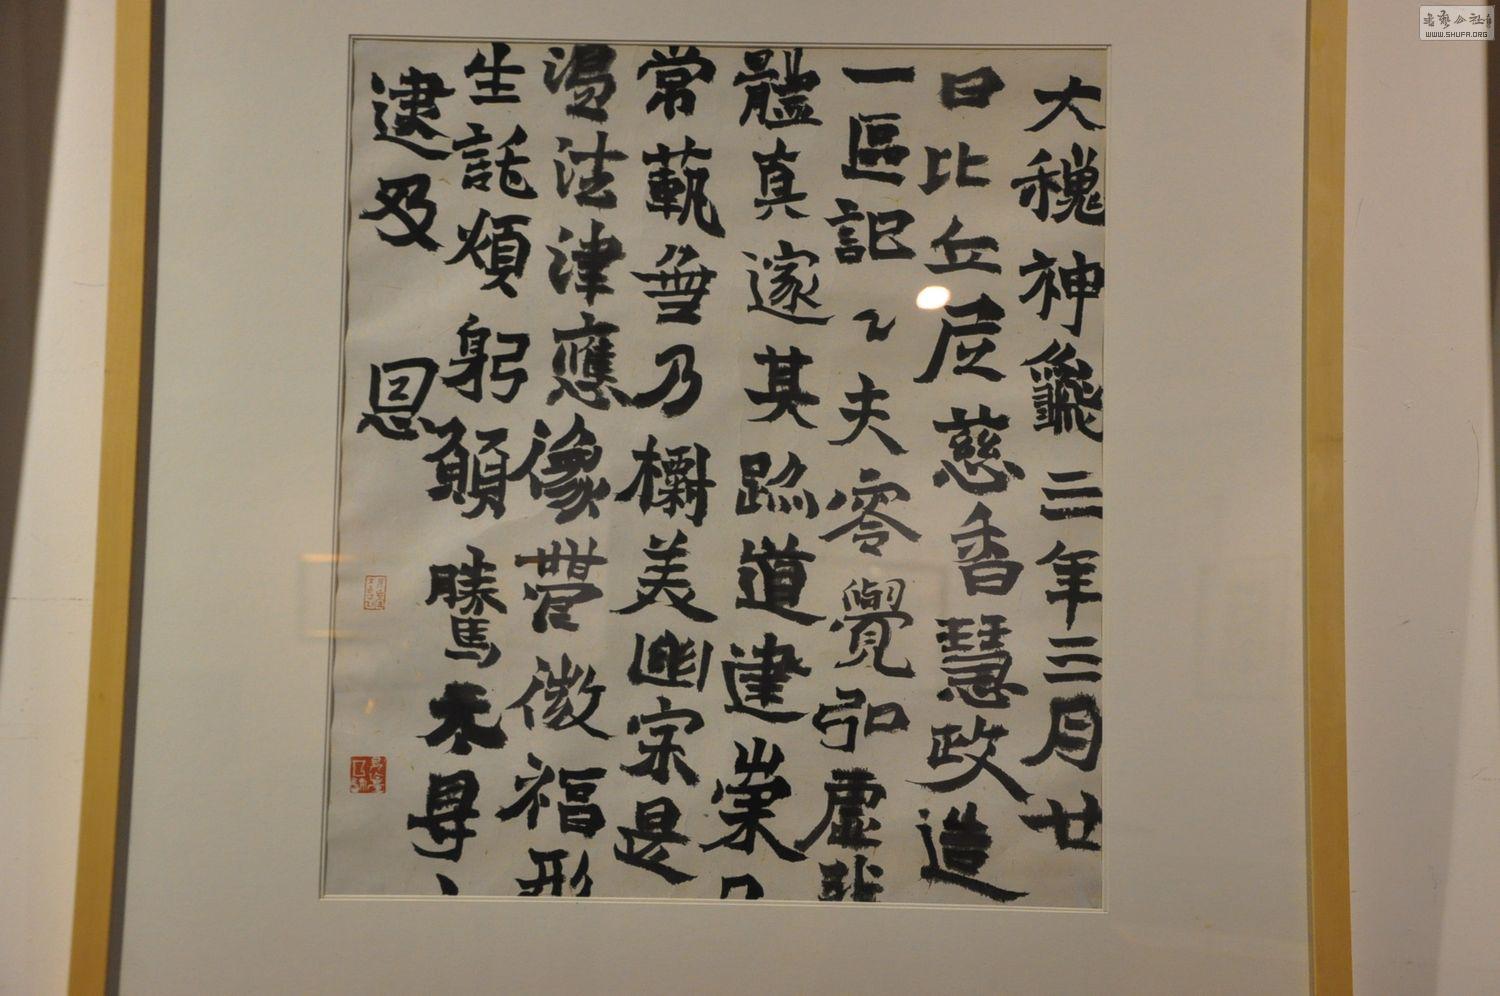 大魏神龜三年三月廿
日比丘尼慈香慧政造
一區記〻夫零覺弘虛非
體真邃其跡道建崇
常範無乃標美幽宗是
渴法津應像營微福形
生託煩躬願騰无㝵
逮及 恩
書藝公社
WWW.SHUFA.ORG